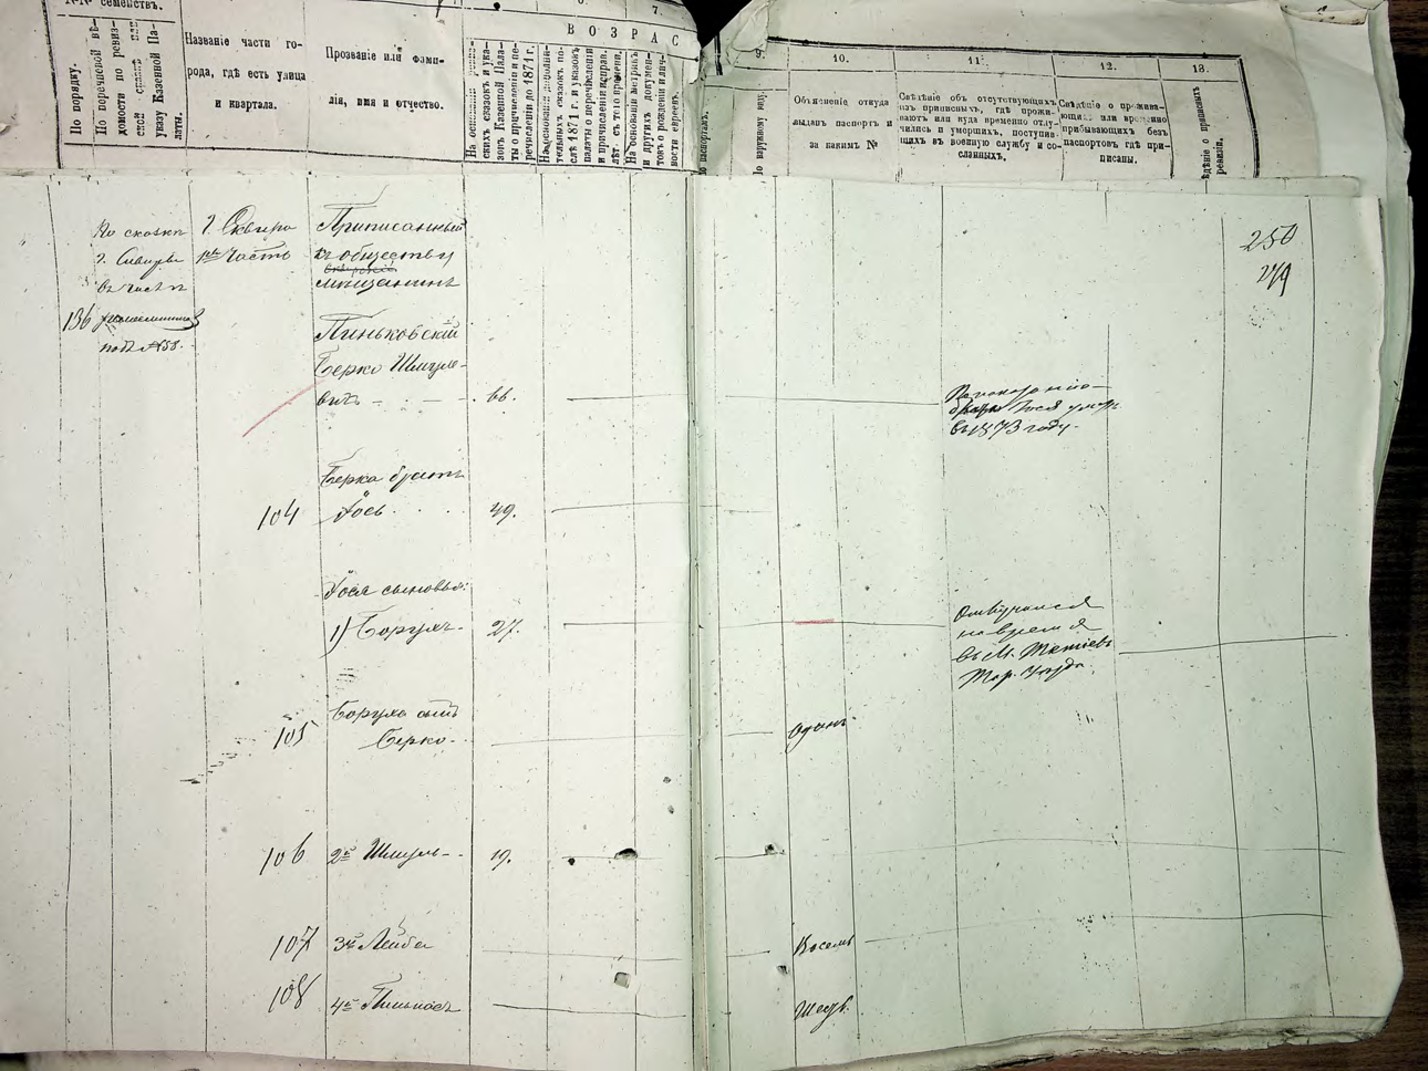 №№ семействъ.
По порядку.
По перечневой вѣ-
домости по ревиз-
ской сказкѣ или
указу Казенной Па-
латы.
Названіе части го-
рода, гдѣ есть улица
и квартала.
Прозваніе или фами-
лія, имя и отчество.
7.
ВОЗРАС
На основаніи ревиз-
скихъ сказокъ и ука-
зовъ Казенной Пала-
ты о причисленіи и пе-
речисленіи до 1871 г.
На основаніи дополни-
тельныхъ сказокъ по-
слѣ 1871 г. и указовъ
палаты о перечисленіи
и причисленіи исправ.
лѣт. съ того времени.
На основаніи метрикъ
и другихъ докумен-
товъ о рожденіи и лич-
ности евреевъ.
По паспортамъ.
9.
По наружному виду.
10.
Объясненіе откуда
выданъ паспортъ и
за какимъ №
11.
Свѣдѣніе объ отсутствующихъ
изъ приписныхъ, гдѣ прожи-
ваютъ или куда временно отлу-
чились и умершихъ, поступив-
шихъ въ военную службу и со-
сланныхъ.
12.
Свѣдѣніе о прожива-
ющихъ или временно
прибывающихъ безъ
паспортовъ гдѣ при-
писаны.
13.
ѣдѣніе о приписныхъ
ревизіи.
По сказкѣ
г. Сквиры
въ части
подъ №58.
г. Сквира
1я часть
Приписанный
къ обществу
мѣщанинъ
250
249
136
Пиньковскій
Берко Шмуле-
вичъ - 66.
По показанію
брата Іося умеръ
въ 1873 году.
Берка братъ
104 Іось 49.
Іося сыновья:
1) Борухъ 27.
Отлучился
на время
въ М. Тетіевъ
Тар. уѣзда.
Боруха сынъ
105 Берко. Одинъ
106 2й Шмуль 19.
107 3й Лейба Восемь
108 4й Пинькасъ Шесть